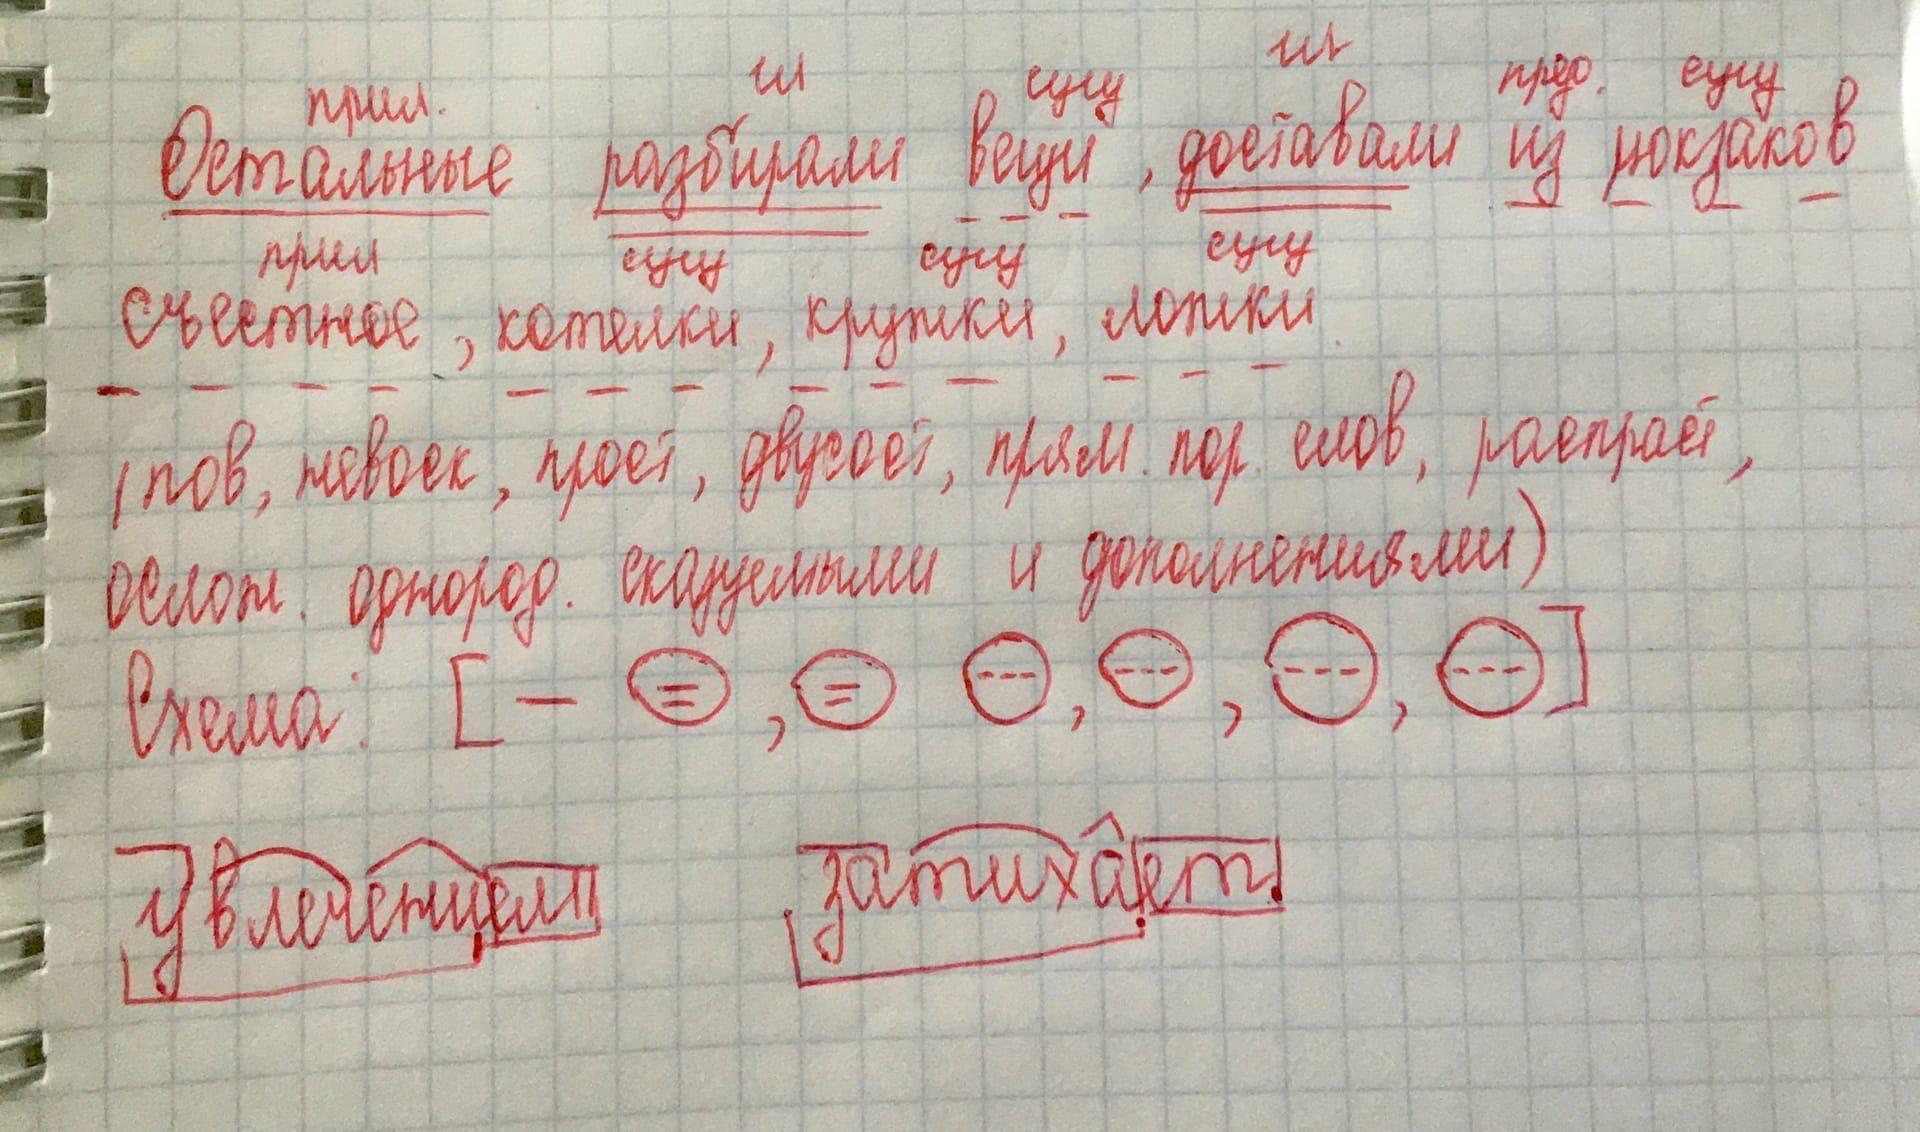 прил. гл сущ гл пред. сущ
Остальные разбирали вещи, доставали из рюкзаков
прил сущ сущ сущ
съестное, котелки, кружки, ложки.
(пов, невоск, прост, двусост, прям. пор. слов, распрост,
ослож. однород. сказуемыми и дополнениями)
Схема: [— =, = ---, ---, ---, ---]
увлечением затихает